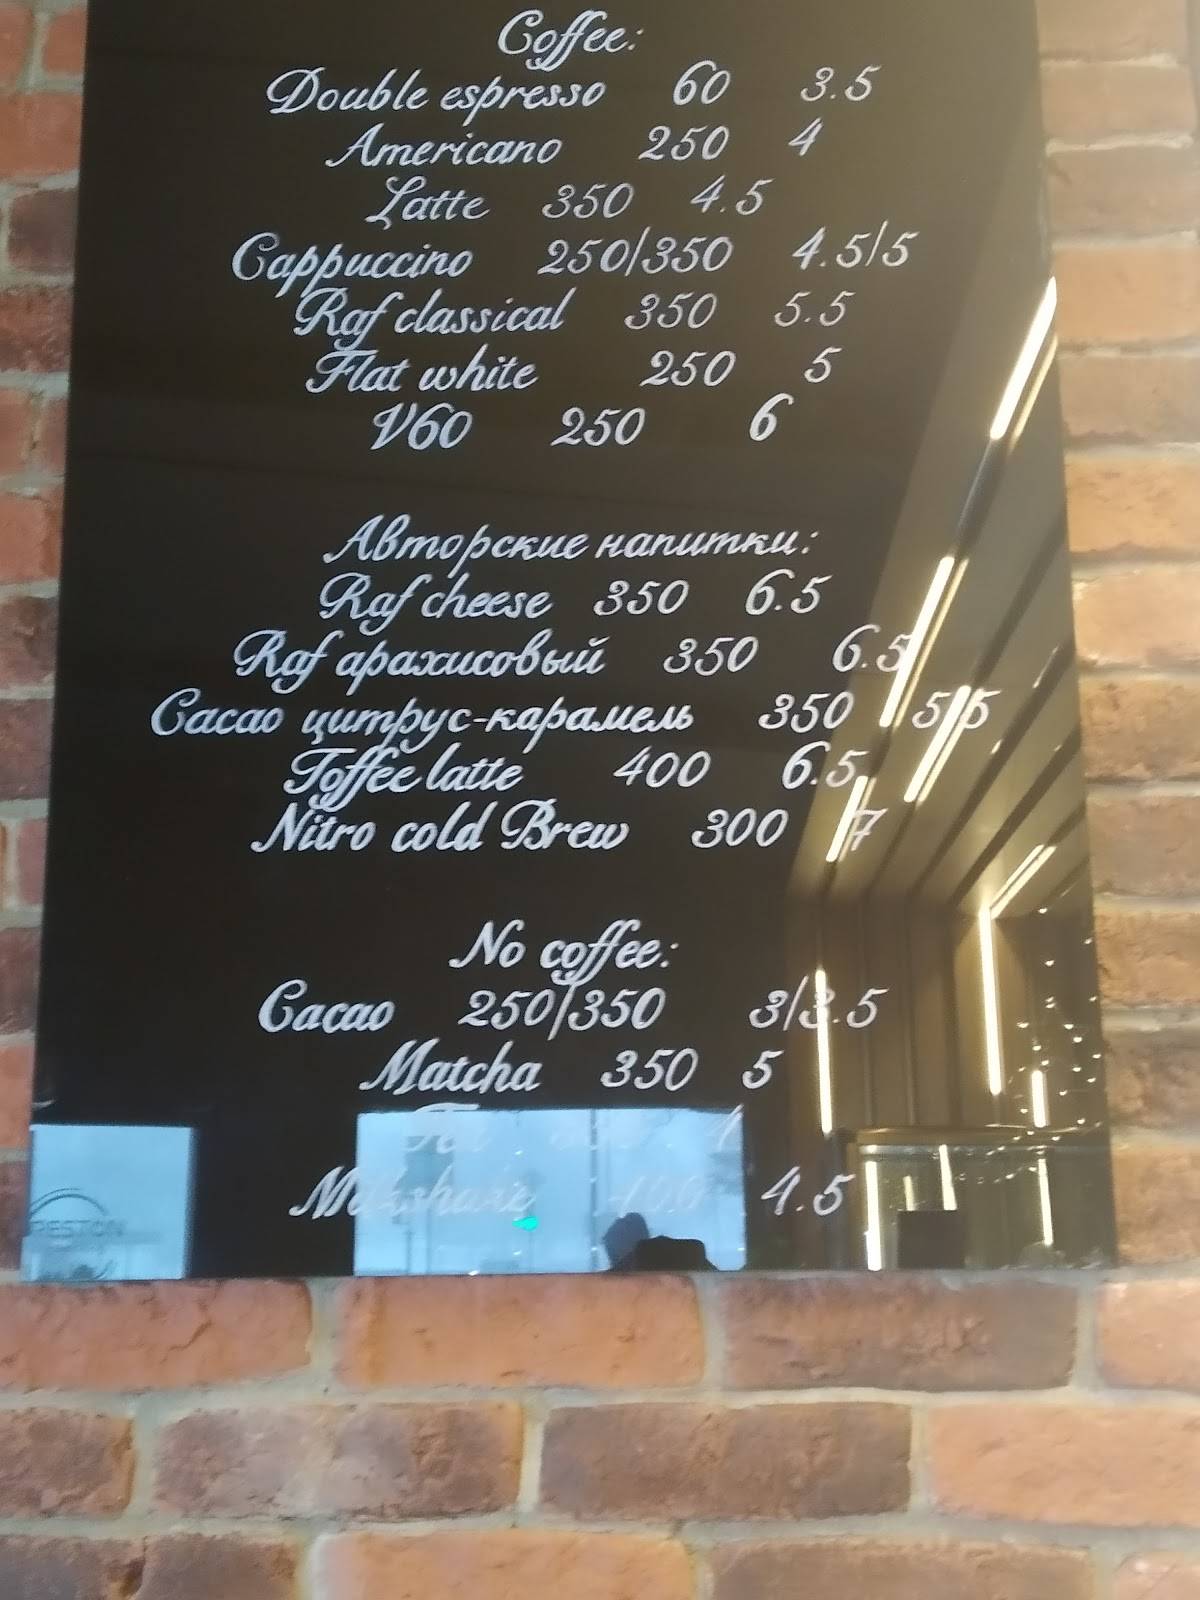 Coffee:
Double espresso 60 3.5
Americano 250 4
Latte 350 4.5
Cappuccino 250/350 4.5/5
Raf classical 350 5.5
Flat white 250 5
V60 250 6
Авторские напитки:
Raf cheese 350 6.5
Raf арахисовый 350 6.5
Cacao цитрус-карамель 350 5.5
Toffee latte 400 6.5
Nitro cold Brew 300 7
No coffee:
Cacao 250/350 3/3.5
Matcha 350 5
Milkshake 400 4.5